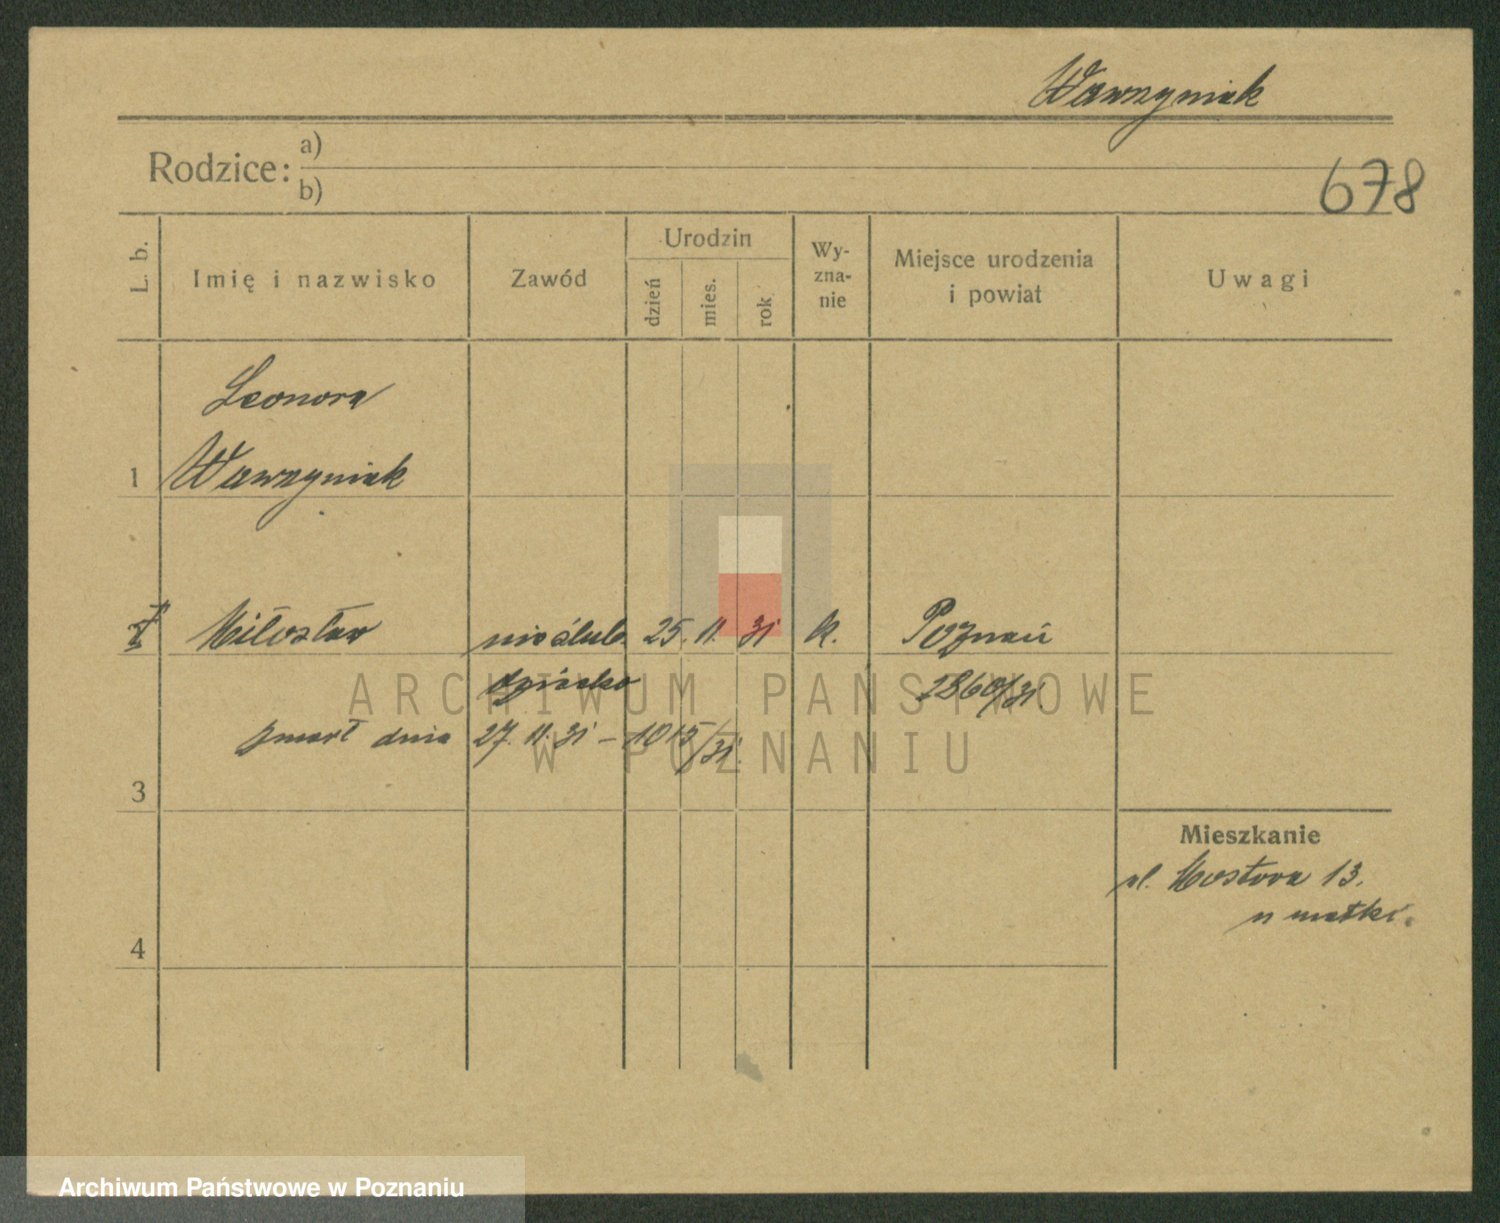 Wawrzyniak
Rodzice: a)
b)
678
L. b.
Imię i nazwisko
Zawód
Urodzin
dzień
mies.
rok
Wy-
zna-
nie
Miejsce urodzenia
i powiat
Uwagi
Leonora
1 Wawrzyniak
Miłosław nieślub. 25. 11. 31 k. Poznań
dziecko 2860/31.
zmarł dnia 27. 11. 31 – 1015/31.
3
Mieszkanie
ul. Mostowa 13.
u matki.
4
ARCHIWUM PAŃSTWOWE
W POZNANIU
Archiwum Państwowe w Poznaniu